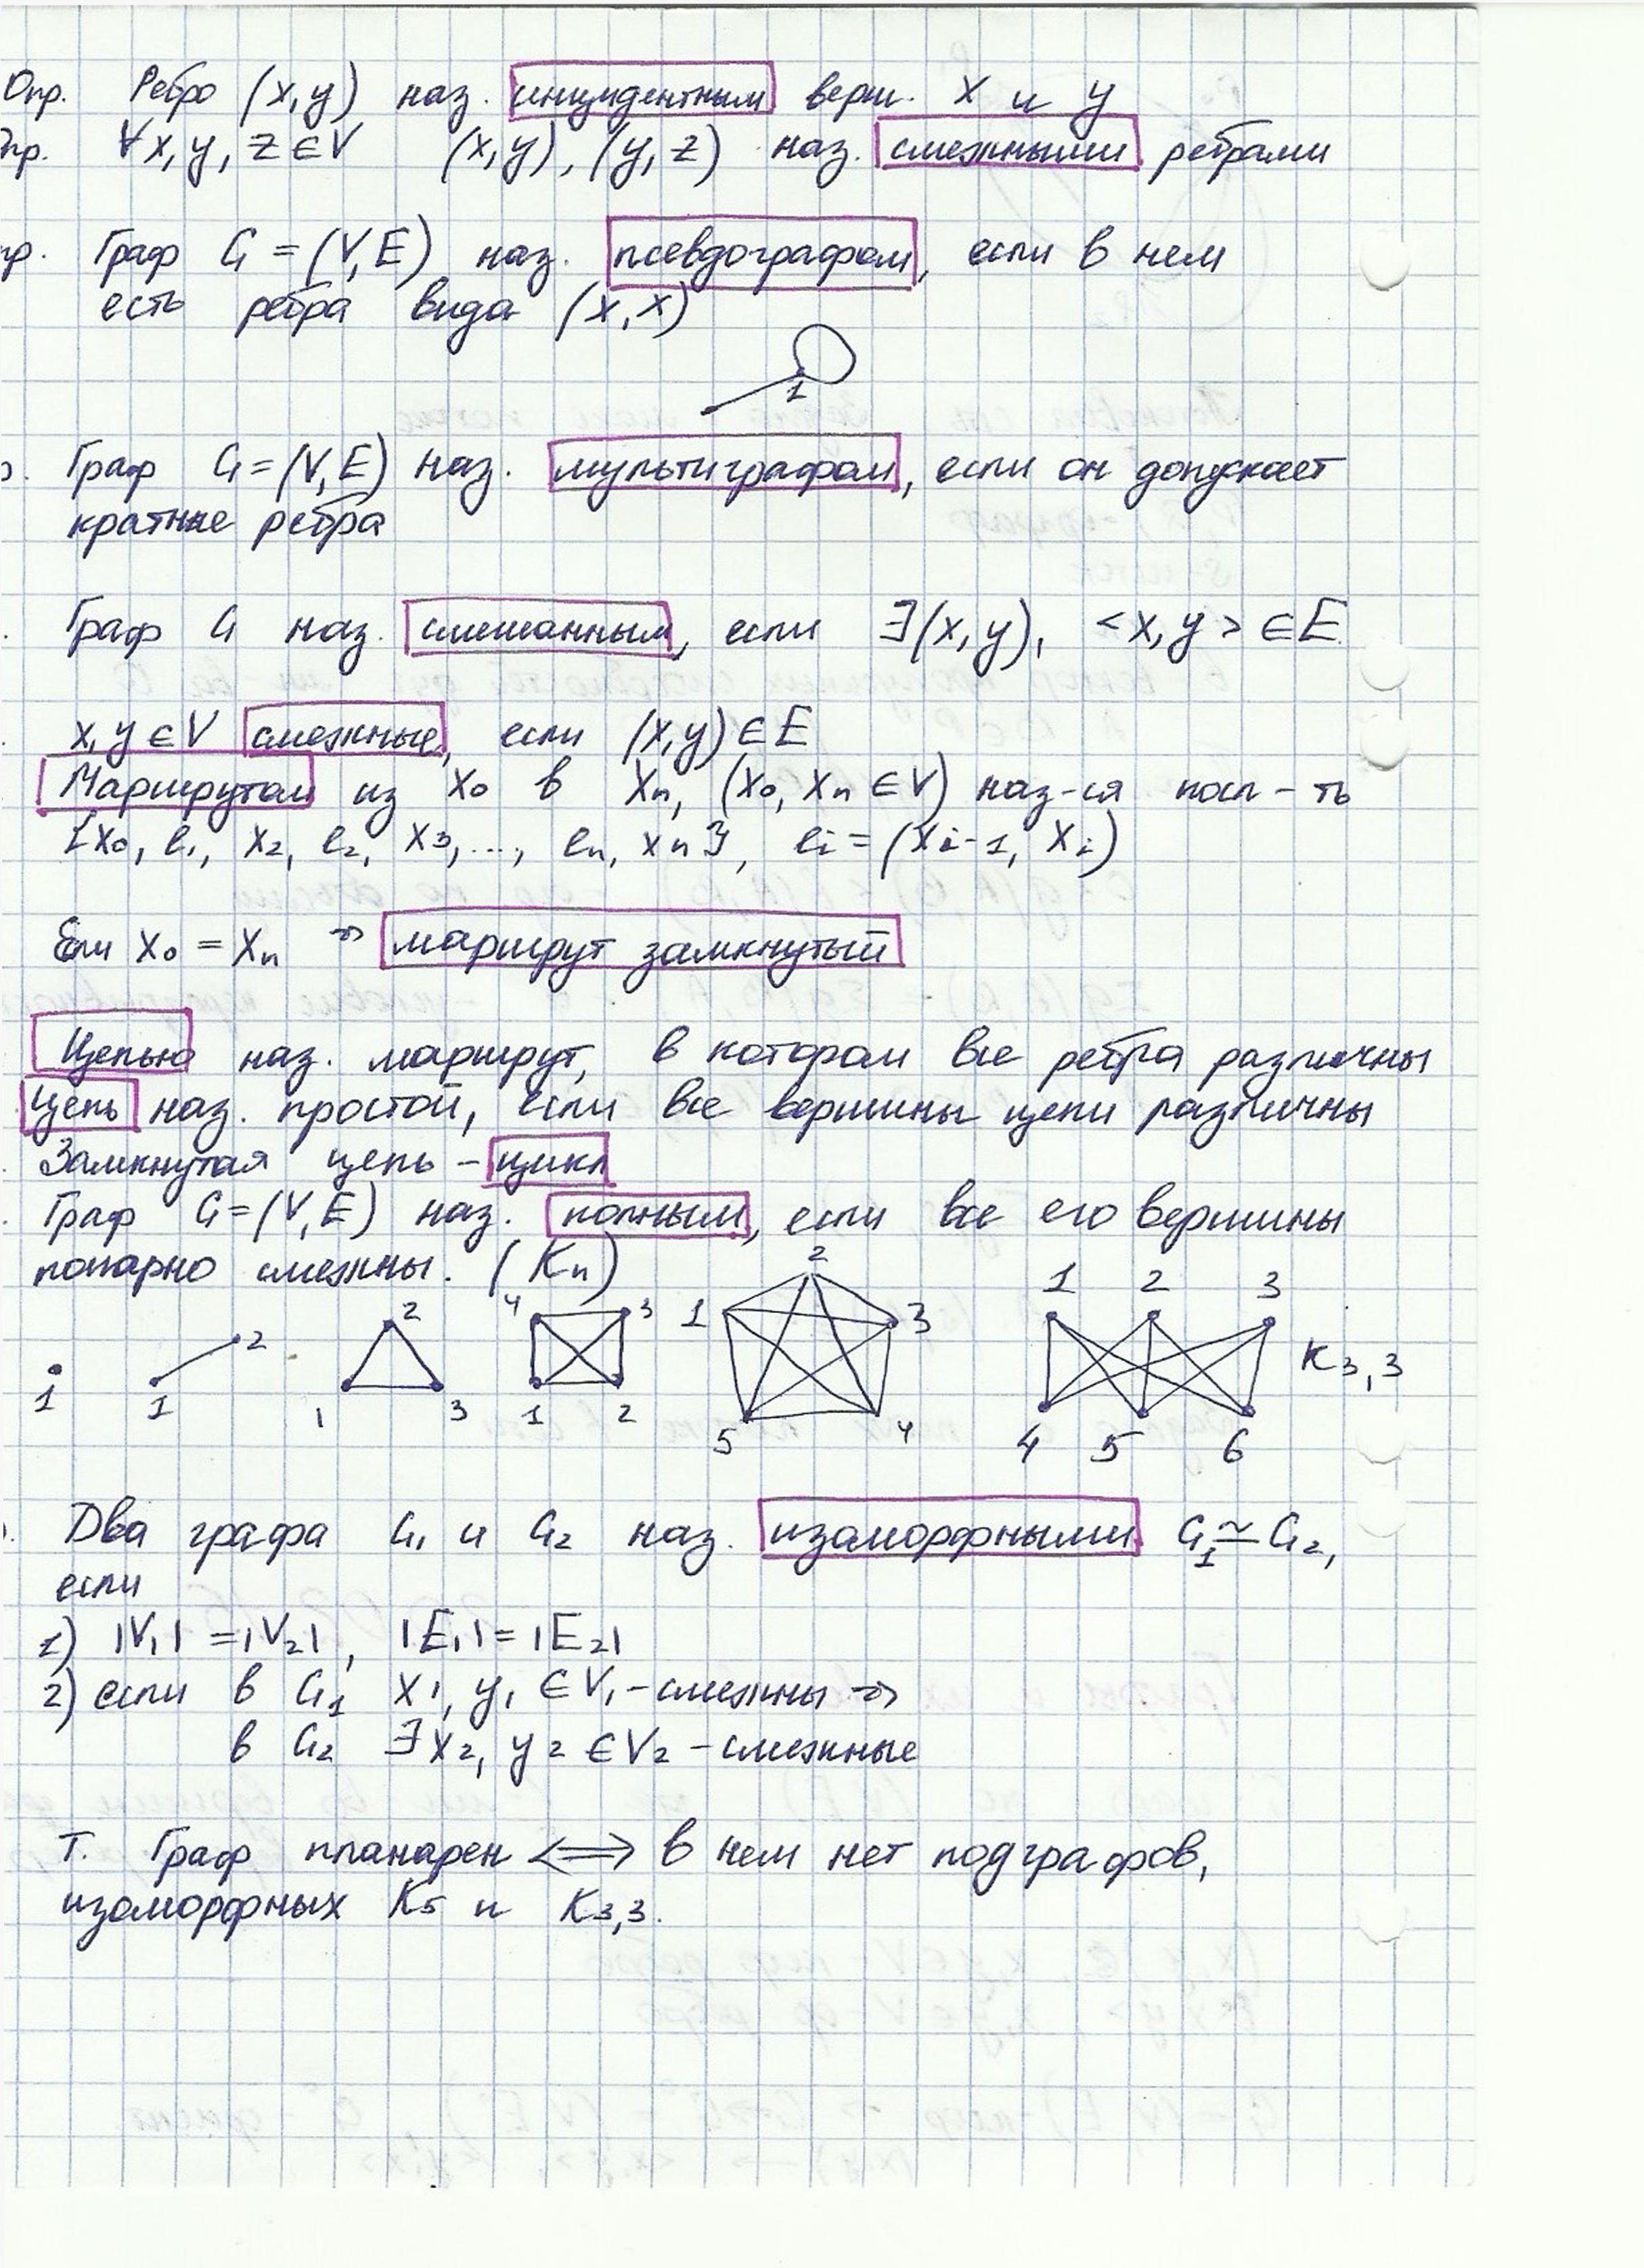 Опр. Ребро (x,y) наз. инцидентным верш. x и y
пр. ∀ x, y, z ∈ V (x,y), (y,z) наз. смежными ребрами
р. Граф G = (V,E) наз. псевдографом, если в нем
есть ребра вида (x,x)
1
Граф G = (V,E) наз. мультиграфом, если он допускает
кратные ребра
Граф G наз. смешанным, если ∃(x,y), <x,y> ∈ E
x,y ∈ V смежные, если (x,y) ∈ E
Маршрутом из x₀ в xₙ, (x₀, xₙ ∈ V) наз-ся посл-ть
{x₀, e₁, x₂, e₂, x₃, ..., eₙ, xₙ}, eᵢ = (xᵢ₋₁, xᵢ)
Если x₀ = xₙ ⇒ маршрут замкнутый
Цепью наз. маршрут, в котором все ребра различны
Цепь наз. простой, если все вершины цепи различны
Замкнутая цепь – цикл
Граф G = (V,E) наз. полным, если все его вершины
попарно смежны. (Kₙ)
1
1 2
1 2 3
4 3 1 2
2 1 3 5 4
1 2 3 K₃,₃ 4 5 6
Два графа G₁ и G₂ наз. изоморфными G₁ ≃ G₂,
если
1) |V₁| = |V₂|, |E₁| = |E₂|
2) если в G₁ x₁, y₁ ∈ V₁ – смежны ⇒
в G₂ ∃ x₂, y₂ ∈ V₂ – смежные
Т. Граф планарен ⟺ в нем нет подграфов,
изоморфных K₅ и K₃,₃.